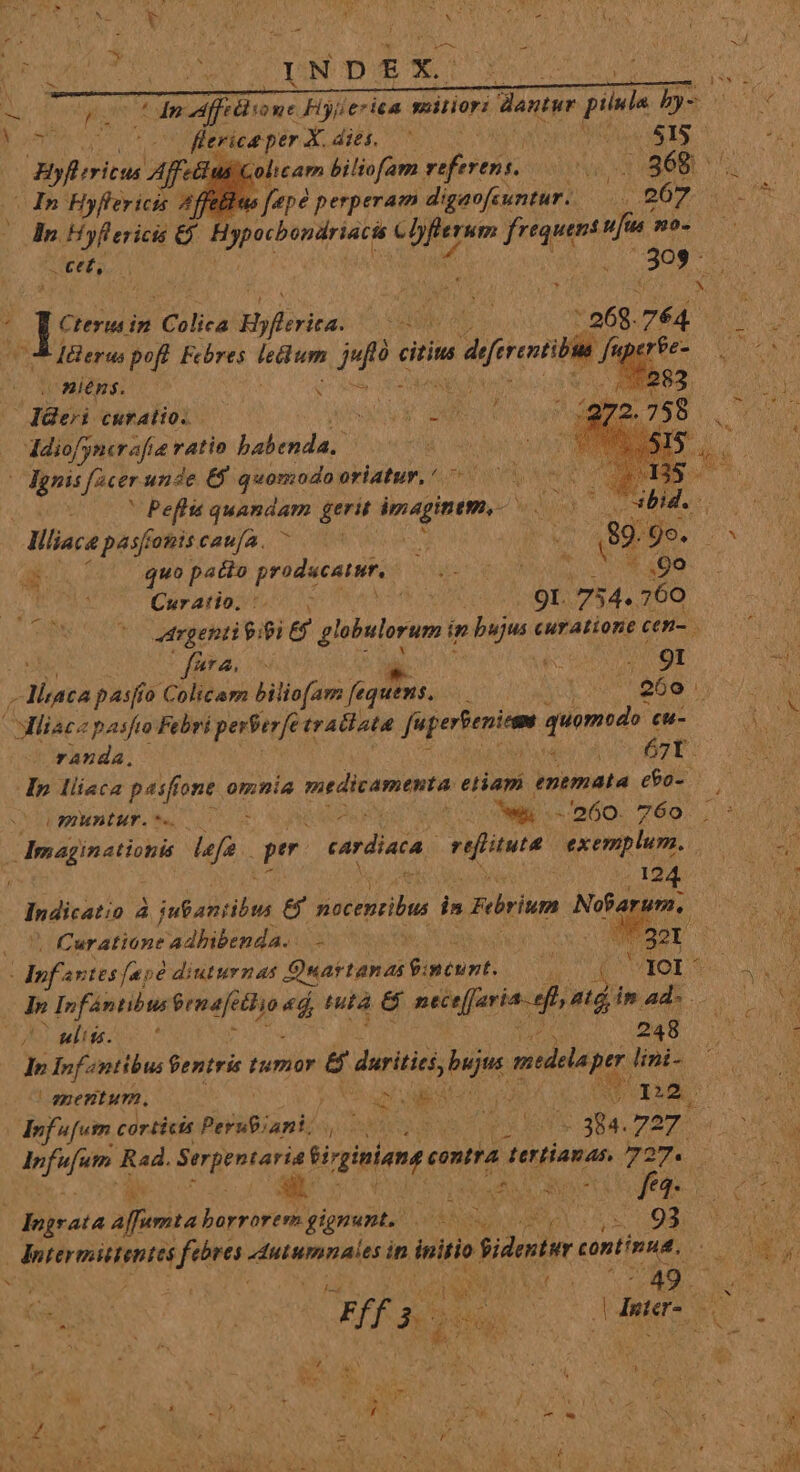 INDEX.
In Affectione Hysterica mitiori dantur pilulæ hy-
stericæ per X. dies. 515
Hystericus Affectus Colicam biliosam referens. 368
In Hystericis Affectus sæpè perperam dignoscuntur. 267
In Hystericis & Hypochondriacis Clysterum frequens usus no-
cet, 309
ICterus in Colica Hysterica. 268. 764
Icterus post Febres lectum justò citius deferentibus superve-
niens. 283
Icteri curatio. 272. 758
Idiosyncrasiæ ratio habenda. 515
Ignis sacer unde & quomodo oriatur. 135
Pestis quandam gerit imaginem, ibid.
Iliacæ passionis causa. 89. 90.
quo pacto producatur, 90
Curatio. 91. 754. 760
Argenti vivi & globulorum in hujus curatione cen-
sura, 91
Iliaca passio Colicam biliosam sequens. 260
Iliacæ passio Febri perversè tractatæ superveniens quomodo cu-
randa. 671
In Iliaca passione omnia medicamenta etiam enemata evo-
muntur. 260. 760
Imaginationis læsæ per cardiaca restitutæ exemplum.
124
Indicatio à juvantibus & nocentibus in Febrium Novarum.
Curatione adhibenda. 321
Infantes sæpè diuturnas Quartanas vincunt. 101
In Infantibus venæsectio æq; tuta & necessaria est, atq; in ad-
ultis. 248
In Infantibus ventris tumor & durities, hujus medela per lini-
mentum. 122
Infusum corticis Peruviani, 384. 727
Infusum Rad. Serpentariæ virginianæ contra tertianas. 727.
seq.
Ingrata assumta horrorem gignunt. 93
Intermittentes febres Autumnales in initio videntur continuæ.
49
Fff 3 Inter-